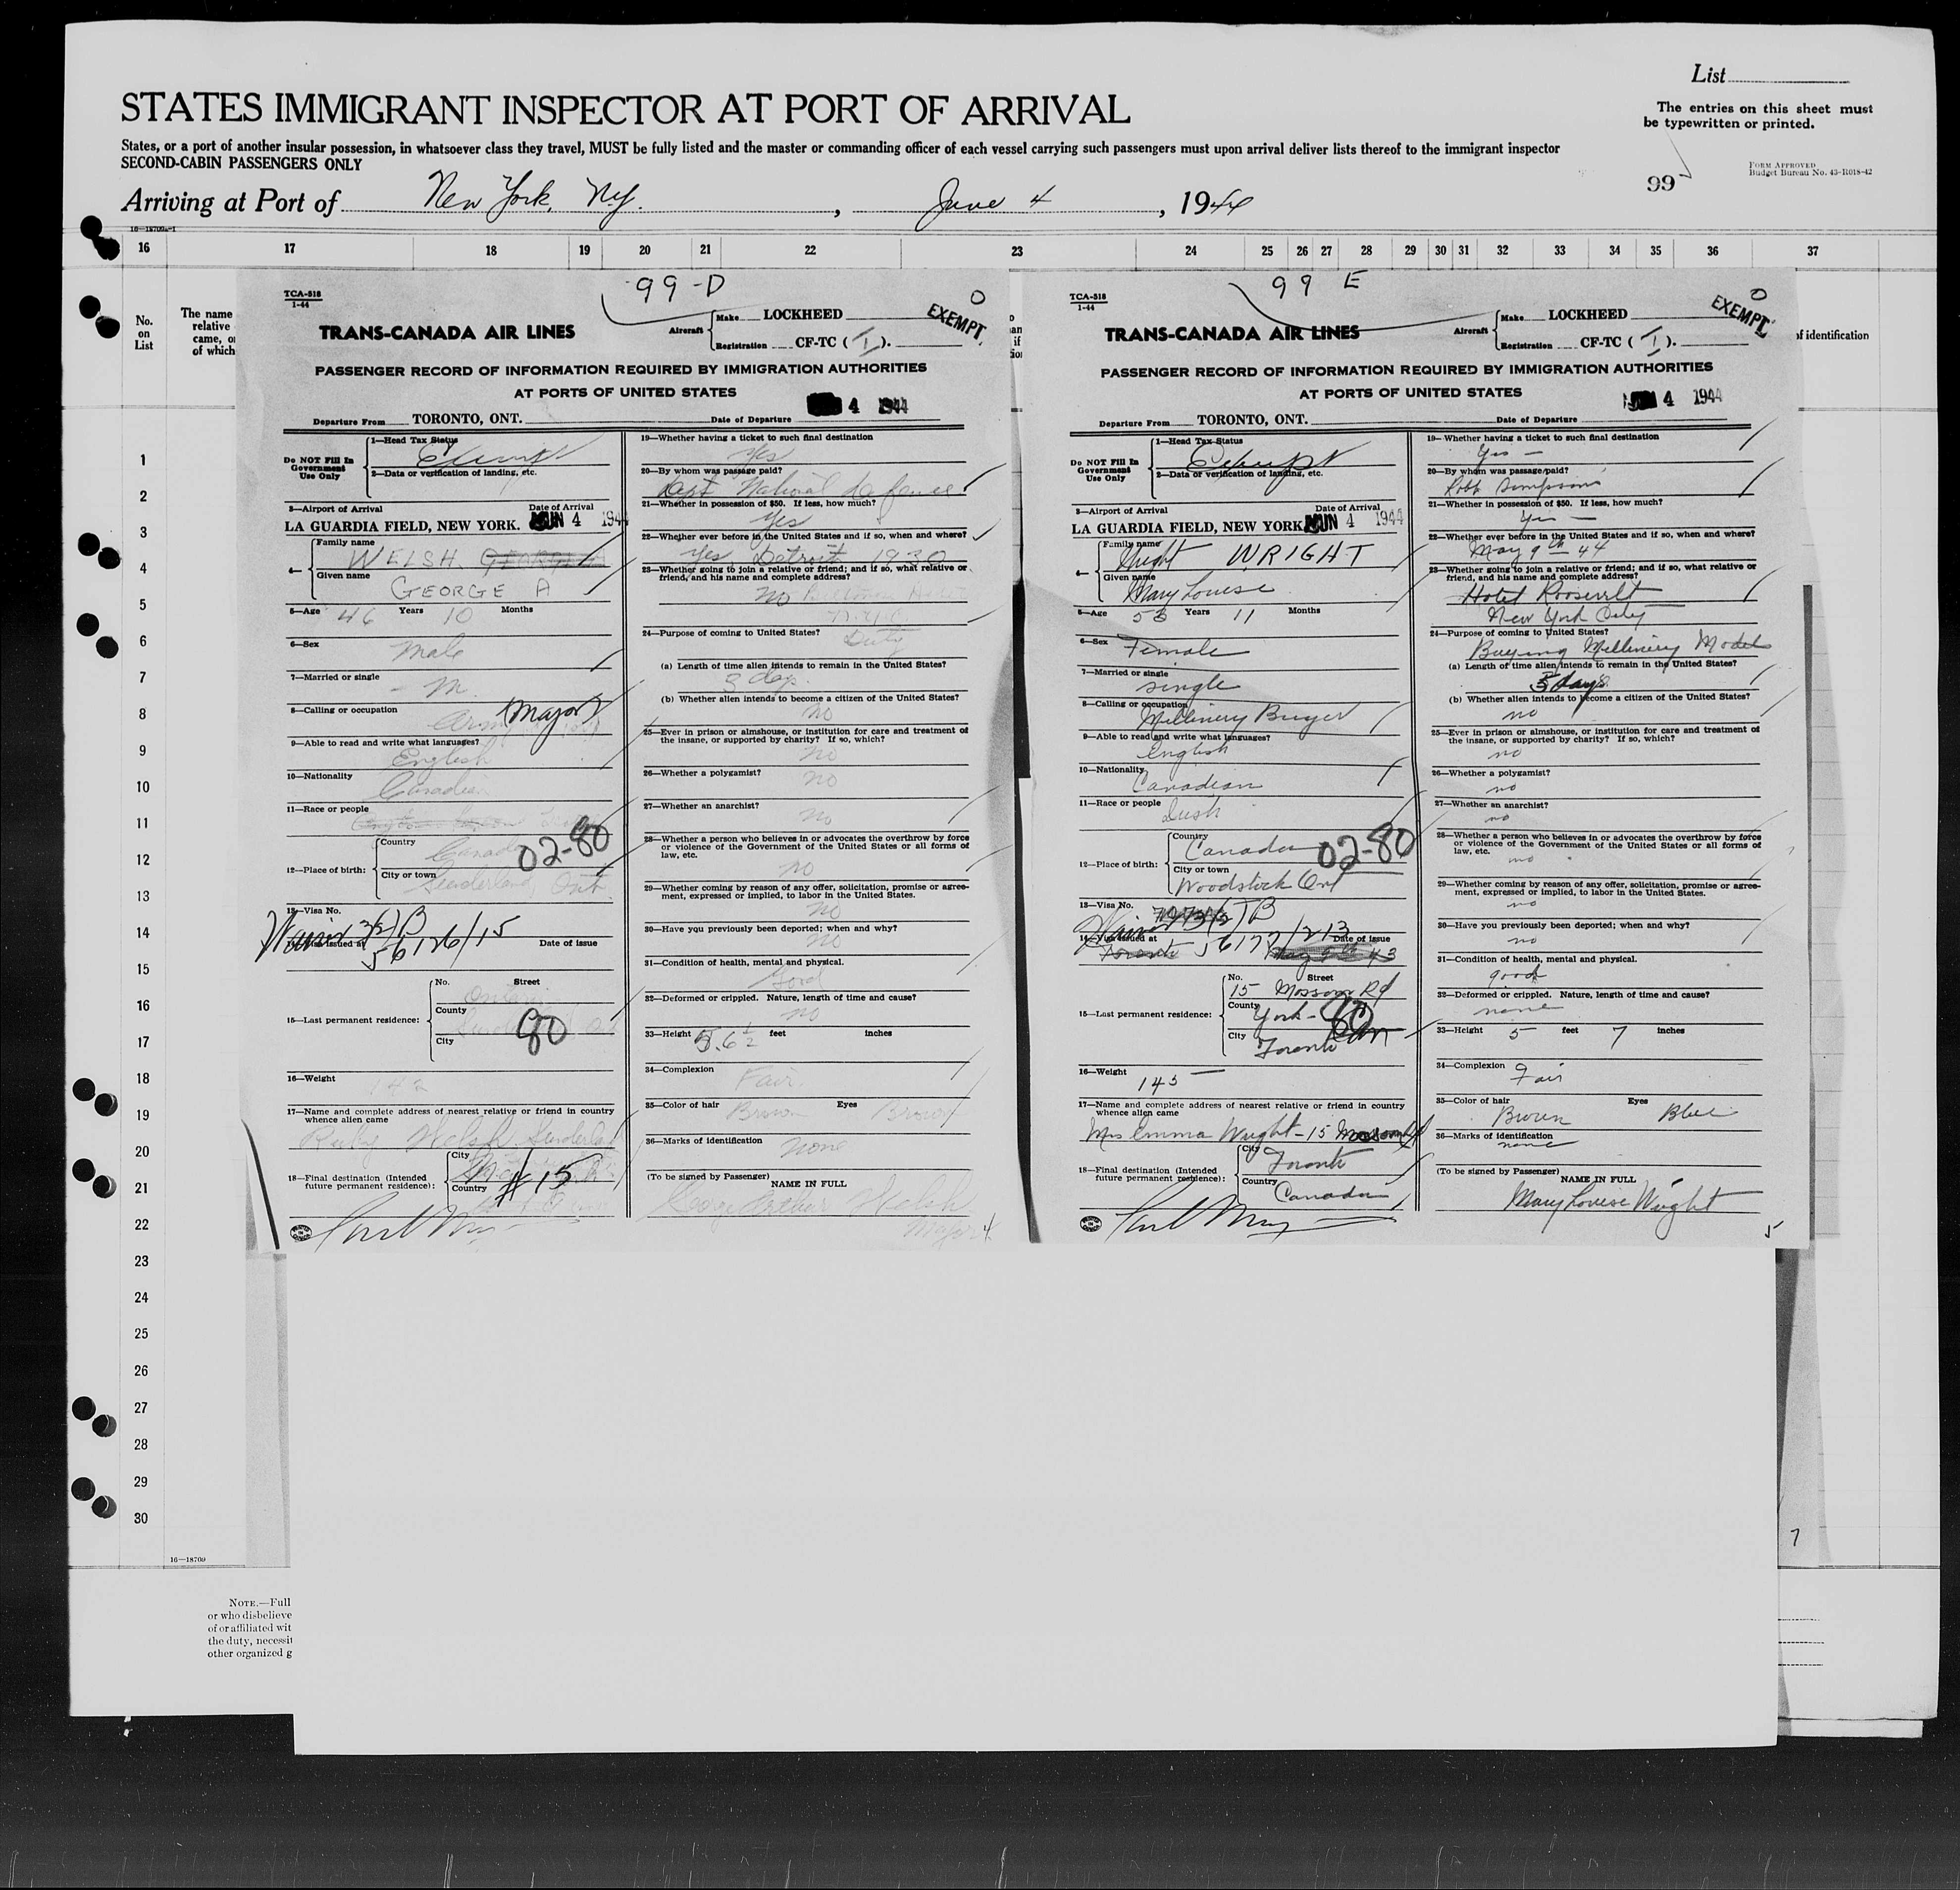 List
STATES IMMIGRANT INSPECTOR AT PORT OF ARRIVAL
The entries on this sheet must
be typewritten or printed.
States, or a port of another insular possession, in whatsoever class they travel, MUST be fully listed and the master or commanding officer of each vessel carrying such passengers must upon arrival deliver lists thereof to the immigrant inspector
SECOND-CABIN PASSENGERS ONLY
FORM APPROVED
Budget Bureau No. 43-R018-42
99
Arriving at Port of New York, N.Y., June 4, 1944
16 17 18 19 20 21 22 23 24 25 26 27 28 29 30 31 32 33 34 35 36 37
No.
on
List
The name
relative
came, o
of which
of identification
1
2
3
4
5
6
7
8
9
10
11
12
13
14
15
16
17
18
19
20
21
22
23
24
25
26
27
28
29
30
16—18709
NOTE.—Full
or who disbelieve
of or affiliated wit
the duty, necessit
other organized g
7
99-D
TCA-518
1-44
TRANS-CANADA AIR LINES
Aircraft
Make LOCKHEED
Registration CF-TC ( I ).
EXEMPT
PASSENGER RECORD OF INFORMATION REQUIRED BY IMMIGRATION AUTHORITIES
AT PORTS OF UNITED STATES
Departure From TORONTO, ONT. Date of Departure 4 1944
Do NOT Fill In
Government
Use Only
1—Head Tax Status
Exempt
2—Data or verification of landing, etc.
3—Airport of Arrival Date of Arrival
LA GUARDIA FIELD, NEW YORK. JUN 4 1944
4—
Family name
WELSH
Given name
GEORGE A
5—Age 46 Years 10 Months
6—Sex
Male
7—Married or single
M.
8—Calling or occupation
Army (Major)
9—Able to read and write what languages?
English
10—Nationality
Canadian
11—Race or people
12—Place of birth:
Country
Canada
02-80
City or town
Sunderland, Ont
13—Visa No.
Waiver 3(2) B
14—Visa issued at Date of issue
56126/15
15—Last permanent residence:
No. Street
Ontario
County
City
80
16—Weight
142
17—Name and complete address of nearest relative or friend in country
whence alien came
Ruby Welsh Sunderland
18—Final destination (Intended
future permanent residence):
City
Country
# 15
19—Whether having a ticket to such final destination
Yes
20—By whom was passage paid?
Dept National defence
21—Whether in possession of $50. If less, how much?
Yes
22—Whether ever before in the United States and if so, when and where?
Yes Detroit 1930
23—Whether going to join a relative or friend; and if so, what relative or
friend, and his name and complete address?
No Biltmore Hotel
N.Y.C.
24—Purpose of coming to United States?
Duty
(a) Length of time alien intends to remain in the United States?
3 day
(b) Whether alien intends to become a citizen of the United States?
no
25—Ever in prison or almshouse, or institution for care and treatment of
the insane, or supported by charity? If so, which?
no
26—Whether a polygamist?
no
27—Whether an anarchist?
no
28—Whether a person who believes in or advocates the overthrow by force
or violence of the Government of the United States or all forms of
law, etc.
no
29—Whether coming by reason of any offer, solicitation, promise or agree-
ment, expressed or implied, to labor in the United States.
no
30—Have you previously been deported; when and why?
no
31—Condition of health, mental and physical.
Good
32—Deformed or crippled. Nature, length of time and cause?
no
33—Height 5.6½ feet inches
34—Complexion
Fair
35—Color of hair Brown Eyes Brown
36—Marks of identification
none
(To be signed by Passenger)
NAME IN FULL
George Arthur Welsh
Major 4
99 E
TCA-518
1-44
TRANS-CANADA AIR LINES
Aircraft
Make LOCKHEED
Registration CF-TC ( I ).
EXEMPT
PASSENGER RECORD OF INFORMATION REQUIRED BY IMMIGRATION AUTHORITIES
AT PORTS OF UNITED STATES
Departure From TORONTO, ONT. Date of Departure 4 1944
Do NOT Fill In
Government
Use Only
1—Head Tax Status
Exempt
2—Data or verification of landing, etc.
3—Airport of Arrival Date of Arrival
LA GUARDIA FIELD, NEW YORK JUN 4 1944
4—
Family name
Wright WRIGHT
Given name
Mary Louise
5—Age 53 Years 11 Months
6—Sex
Female
7—Married or single
single
8—Calling or occupation
Millinery Buyer
9—Able to read and write what languages?
English
10—Nationality
Canadian
11—Race or people
Irish
12—Place of birth:
Country
Canada
02-80
City or town
Woodstock Ont
13—Visa No.
Waiver 3(2) B
14—Visa issued at Date of issue
Toronto 56177/213 May 9th 43
15—Last permanent residence:
No. Street
15 Mossom Rd
County
York - 80
City
Toronto
16—Weight
145
17—Name and complete address of nearest relative or friend in country
whence alien came
Mrs Emma Wright - 15 Mossom
18—Final destination (Intended
future permanent residence):
City
Toronto
Country
Canada
19—Whether having a ticket to such final destination
Yes —
20—By whom was passage paid?
Robt Simpson
21—Whether in possession of $50. If less, how much?
Yes —
22—Whether ever before in the United States and if so, when and where?
May 9th - 44
23—Whether going to join a relative or friend; and if so, what relative or
friend, and his name and complete address?
Hotel Roosevelt
New York City
24—Purpose of coming to United States?
Buying Millinery Models
(a) Length of time alien intends to remain in the United States?
5 days
(b) Whether alien intends to become a citizen of the United States?
no
25—Ever in prison or almshouse, or institution for care and treatment of
the insane, or supported by charity? If so, which?
no
26—Whether a polygamist?
no
27—Whether an anarchist?
no
28—Whether a person who believes in or advocates the overthrow by force
or violence of the Government of the United States or all forms of
law, etc.
no
29—Whether coming by reason of any offer, solicitation, promise or agree-
ment, expressed or implied, to labor in the United States.
no
30—Have you previously been deported; when and why?
no
31—Condition of health, mental and physical.
good
32—Deformed or crippled. Nature, length of time and cause?
none
33—Height 5 feet 7 inches
34—Complexion
Fair
35—Color of hair Brown Eyes Blue
36—Marks of identification
none
(To be signed by Passenger)
NAME IN FULL
Mary Louise Wright
5